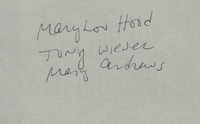 MaryLou Hood
Tony Wiener
Mary Andrews